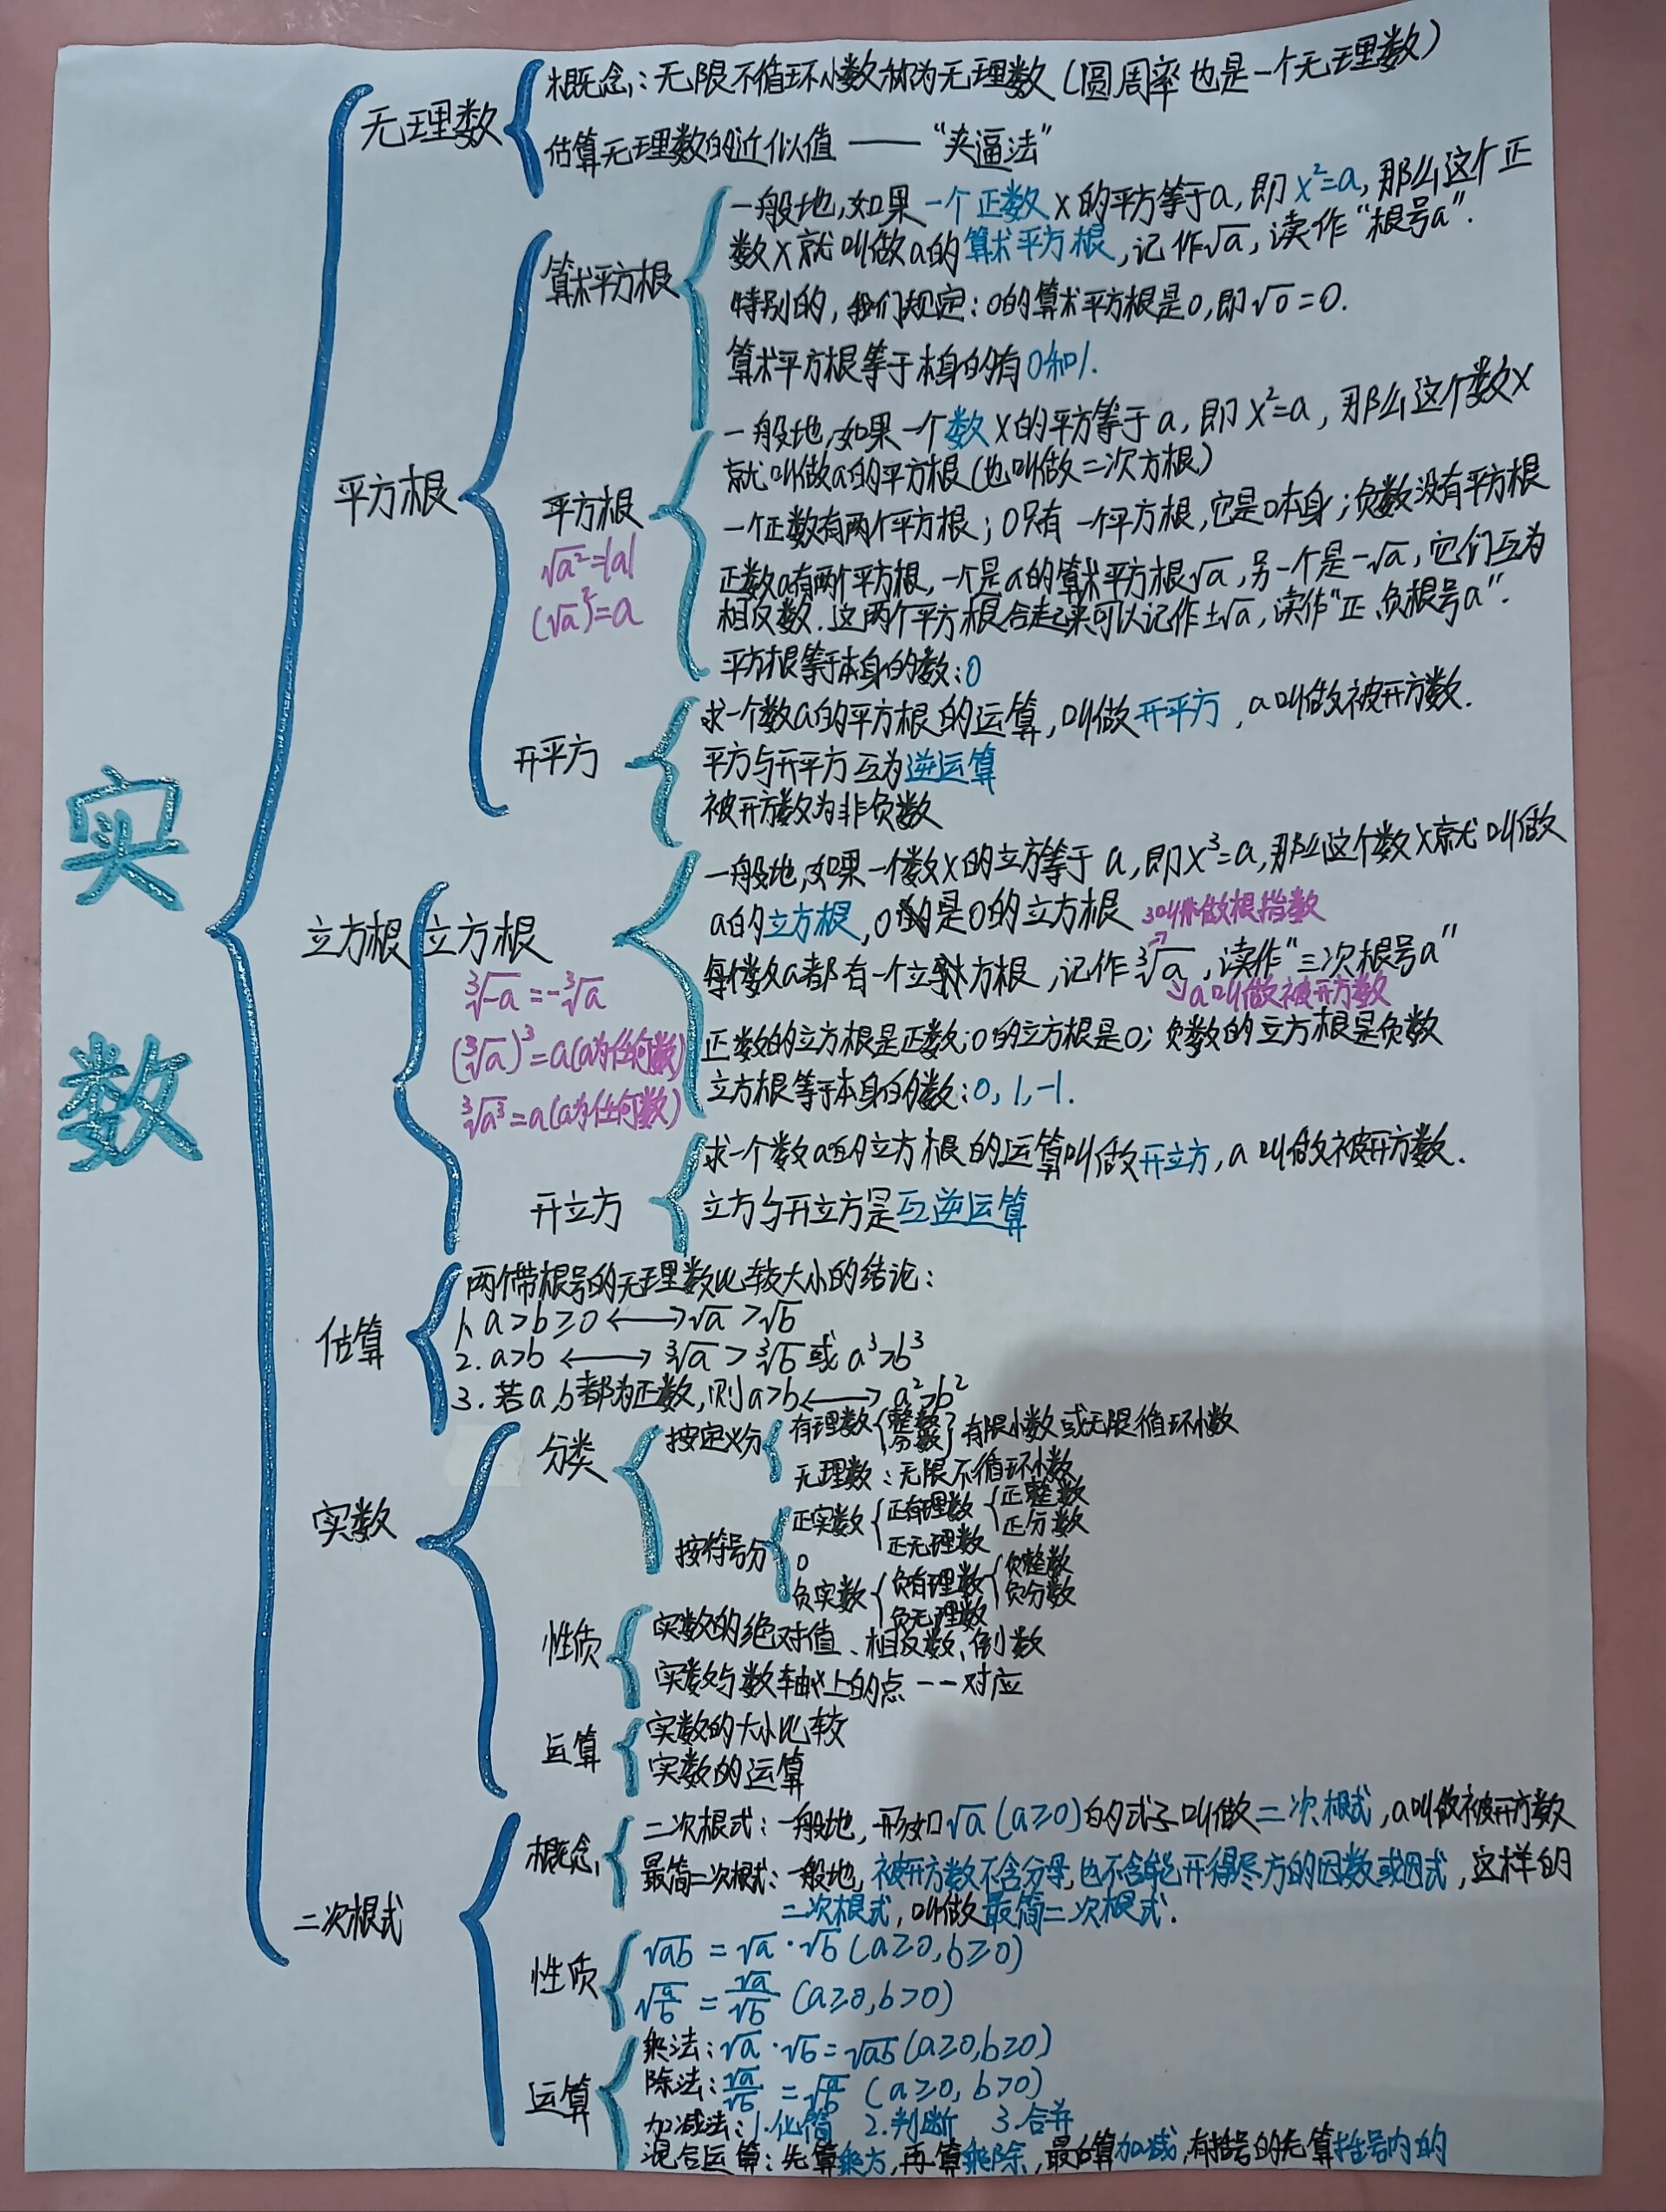 实数
无理数
概念：无限不循环小数称为无理数(圆周率也是一个无理数)
估算无理数的近似值 —— “夹逼法”
平方根
算术平方根
一般地,如果一个正数x的平方等于a,即x²=a,那么这个正
数x就叫做a的算术平方根,记作√a,读作“根号a”.
特别的,我们规定：0的算术平方根是0,即√0=0.
算术平方根等于本身的有0和1.
平方根
√a²=|a|
(√a)²=a
一般地,如果一个数x的平方等于a,即x²=a,那么这个数x
就叫做a的平方根(也叫做二次方根)
一个正数有两个平方根；0只有一个平方根,它是0本身；负数没有平方根
正数a有两个平方根,一个是a的算术平方根√a,另一个是-√a,它们互为
相反数.这两个平方根合起来可以记作±√a,读作“正、负根号a”.
平方根等于本身的数:0
开平方
求一个数a的平方根的运算,叫做开平方,a叫做被开方数.
平方与开平方互为逆运算
被开方数为非负数
立方根
立方根
∛-a=-∛a
(∛a)³=a(a为任何数)
∛a³=a(a为任何数)
一般地,如果一个数x的立方等于a,即x³=a,那么这个数x就叫做
a的立方根,0的是0的立方根
3叫做根指数
每个数a都有一个立方根,记作∛a,读作“三次根号a”
a叫做被开方数
正数的立方根是正数;0的立方根是0;负数的立方根是负数
立方根等于本身的数:0,1,-1.
开立方
求一个数a的立方根的运算叫做开立方,a叫做被开方数.
立方与开立方是互逆运算
估算
两个带根号的无理数比较大小的结论：
1. a>b≥0⟷√a>√b
2. a>b⟷∛a>∛b或a³>b³
3.若a,b都为正数,则a>b⟷a²>b²
实数
分类
按定义分
有理数
整数
分数
有限小数或无限循环小数
无理数：无限不循环小数
按符号分
正实数
正有理数
正整数
正分数
正无理数
0
负实数
负有理数
负整数
负分数
负无理数
性质
实数的绝对值、相反数、倒数
实数与数轴上的点一一对应
运算
实数的大小比较
实数的运算
二次根式
概念
二次根式：一般地,形如√a(a≥0)的式子叫做二次根式,a叫做被开方数
最简二次根式：一般地,被开方数不含分母,也不含能开得尽方的因数或因式,这样的
二次根式,叫做最简二次根式.
性质
√ab=√a·√b(a≥0,b≥0)
√(a/b)=√a/√b(a≥0,b>0)
运算
乘法：√a·√b=√ab(a≥0,b≥0)
除法：√a/√b=√(a/b)(a≥0,b>0)
加减法：1.化简 2.判断 3.合并
混合运算：先算乘方,再算乘除,最后算加减,有括号的先算括号内的